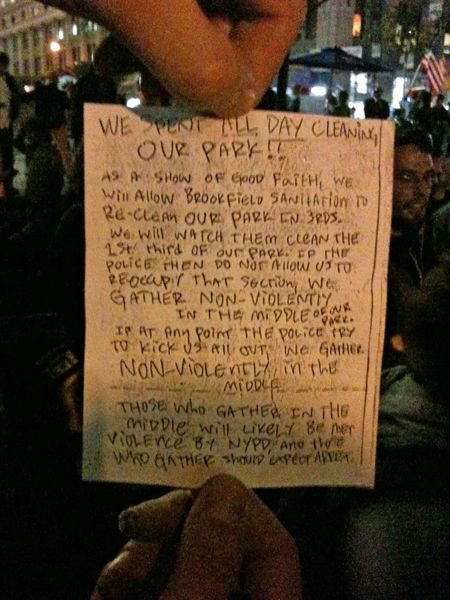 WE SPENT ALL DAY CLEANING
OUR PARK!!
AS A SHOW OF GOOD FAITH, WE
Will Allow BROOKFIELD SANITATION TO
RE-CLEAN OUR PARK IN 3RDS.
WE WILL WATCH THEM CLEAN THE
1ST third OF OUR PARK. IF THE
POLICE THEN DO NOT ALLOW US TO
REOCCUPY THAT SECTION, WE
GATHER NON-VIOLENTLY
IN THE MIDDLE OF OUR
PARK.
IF AT ANY POINT THE POLICE TRY
TO KICK US ALL OUT, WE GATHER
NON-VIOLENTLY, in the
MIDDLE
THOSE WHO GATHER IN THE
MIDDLE will LIKELY BE MET
VIOLENCE BY NYPD, AND THOSE
WHO GATHER SHOULD EXPECT ARREST.